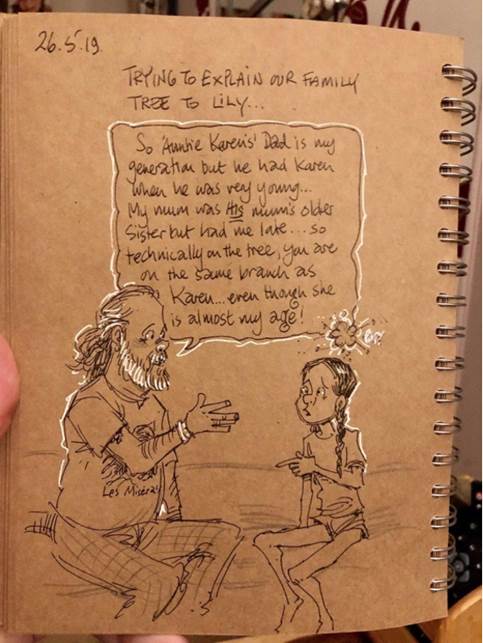 26.5.19.
TRYING TO EXPLAIN OUR FAMILY
TREE TO LILY...
So 'Auntie Karen's' Dad is my
generation but he had Karen
when he was very young...
My mum was His mum's older
Sister but had me late... so
technically on the tree, you are
on the same branch as
Karen... even though she
is almost my age!
Les Misérab